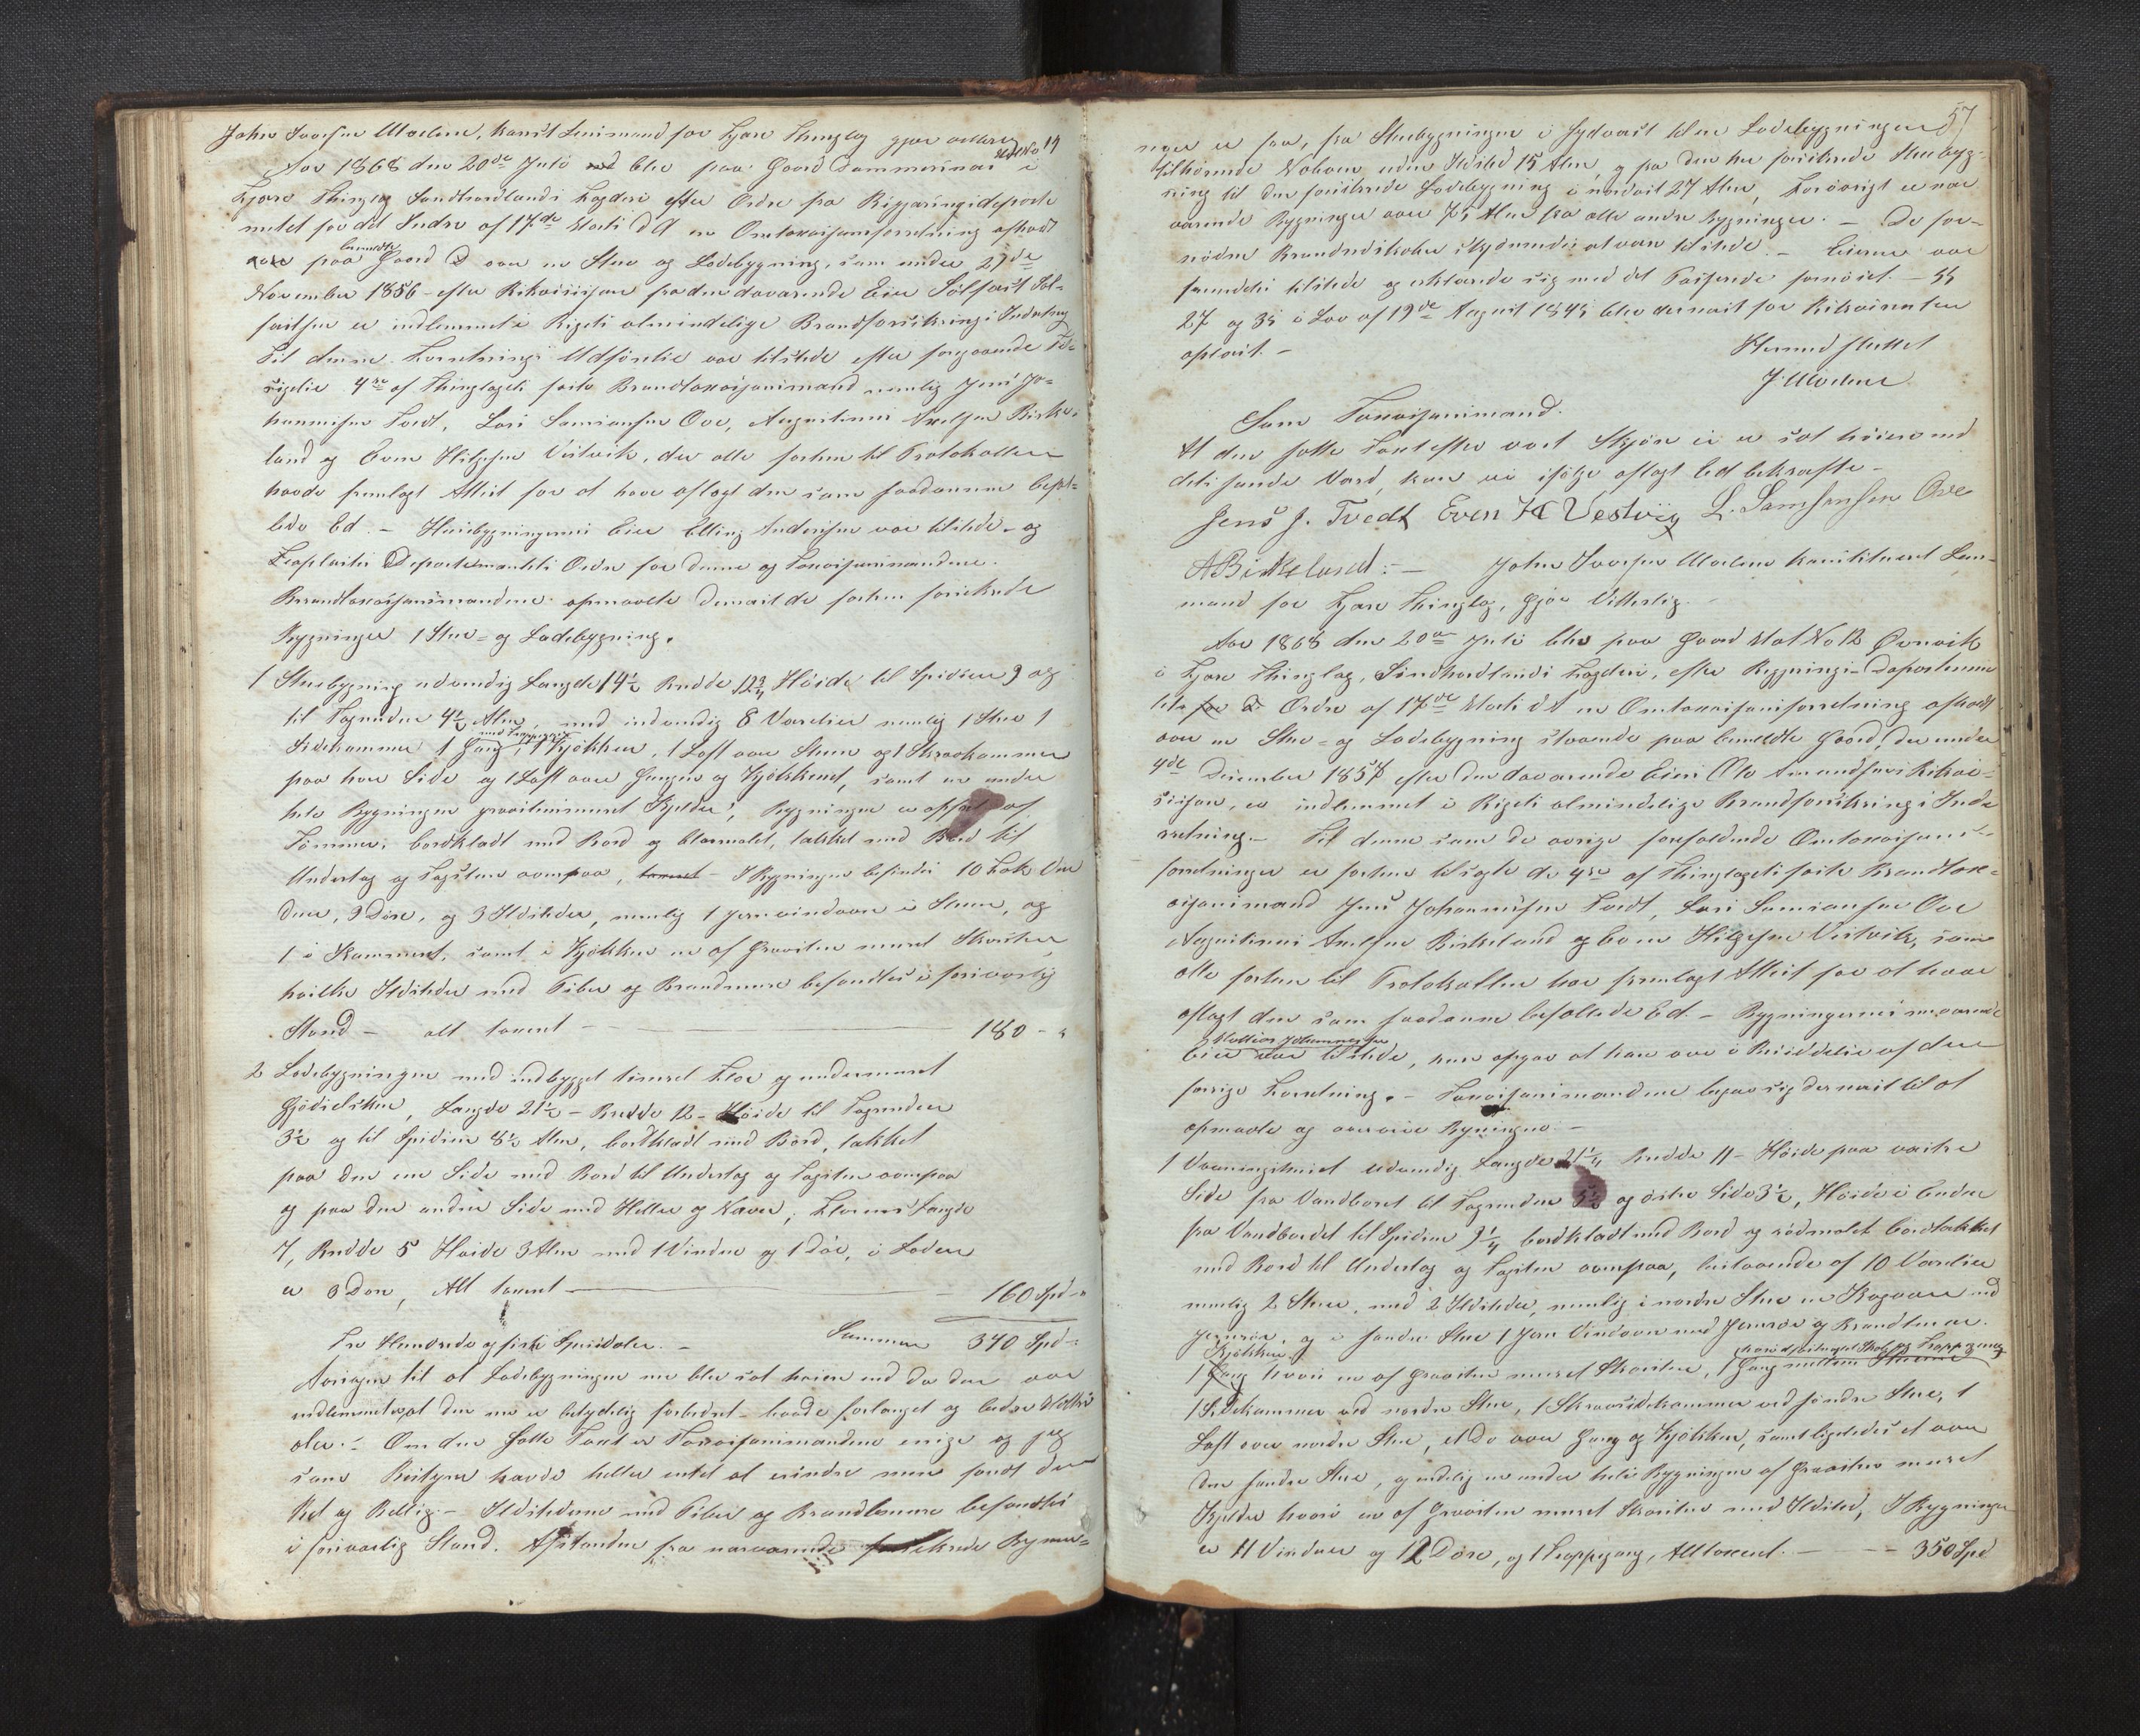 John Ivarsen Moelven, Const Lensmand for Fjære Thinglag gjør vitterlig
Aar 1868 den 20de Juli blev paa Gaard Sammersnæs Mat No 14 i
Fjære Thinglag Søndhordlands Fogderi efter Ordre fra Bygningsdeparte
mentet for det Indre af 17de Marts d A en Omtaxasjonsforretning afholdt
over paa bemeldte Gaard over en Stue og Ladebygning, som under 27de
November 1856 efter Rekvisision fra den davarende Eier Sølfæst Søl-
fæstsen er indlemmet i Rigets almindelige Brandforsikrings Indretning
Til denne Forretnings Udførelse var tilstede efter forgaaende Til-
sigelse 4re af Thinglagets faste Brandtaxasjonsmænd nemlig Jens Jo-
hannessen Tvedt, Lars Samsonsen Ove, Augustinus Axelsen Birke-
land og Even Helgesen Vestvik, der alle forhen til Protokollen
havde fremlagt Attest for at have aflagt den som saadanne befal-
ede Ed. – Husbygningernes Eier Elling Andersen var tilstede – og
Departementets Ordre for denne og Taxasjonsmændene.
Brandtaxasjonsmændene opmaalte dernæst de forhen forsikrede
Bygninger 1 Stue- og Ladebygning.
1 Stuebygning udvendig Længde 14½ Bredde 12¾ Høide til Spidsen 9 og
til Tagrenden 4½ Alen, med indvendig 8 Værelser nemlig 1 Stue 1
Sidekammer 1 Gang med Trappegang, 1 Kjøkken, 1 Loft over Stuen og 1 Skraakammer
paa hver Side og 1 Loft over Gangen og Kjøkkenet, samt en under
hele Bygningen graastensmuret Kjelder, Bygningen er opført af
Tømmer, bordklædt med Bord og malet, tækket med Bord til
Undertag og Tagsten ovenpaa, – I Bygningen befindes 10 Fak Vin
duer, 9 Døre, og 3 Ildsteder, nemlig 1 Jernvindovn i Stuen, og
1 i Kammeret, samt i Kjøkken en af Graasten muret Skorsten
hvilke Ildsteder med Piber og Brandmure befandtes i forsvarlig
Stand – alt taxeret – 180 - "
2 Ladebygningen med indbygget tømret Flor og undermuret
Gjødselskur, Længde 21½ – Bredde 12 – Høide til Tagrenden
3½ og til Spidsen 8½ Alen, bordklædt med Bord, takket
paa den ene Side med Bord til Undertag og Tagsten ovenpaa
og paa den anden Side med Heller og Næver; Florens Længde
7, Bredde 5 Høide 3 Alen med 1 Vindue og 1 Dør, i Laden
er 3 Døre, Alt taxeret – 160 Spd - "
Tre Hundrede og firti Speciedaler. – Summen 340 Spd -"
Aarsagen til at Ladebygningen nu blev sat høiere end da den var
indlemmet er, at den nu er betydelig forbedret – baade forlænget og bedre Matri
aler. – Om den satte Taxt er Taxasjonsmændene enige og jeg
som Bestyrer havde heller intet at erindre men fandt den
Ret og Billig. – Ildstederne med Piber og Brandmure befandtes
i forsvarlig Stand. Afstanden fra nærværende forsikrede Bygnin-
57
nger er saa, fra Stuebygningen i Sydvest til en Ladebygningen
tilhørende Naboen uden Ildsted 15 Alen, og fra den her forsikrede Stuebyg-
ning til den forsikrede Ladebygning i nordost 27 Alen, Forøvrigt er nær
værende Bygninger over 75 Alen fra alle andre Bygninger. – De for-
nødne Brandredskaber skjønnedes at være tilstede. – Eieren var
fremdeles tilstede og erklærede sig med det Passerede fornøiet – §§
27 og 35 i Lov af 19de August 1845 blev dernæst for Rekvirenten
oplæst. –
Hermed sluttet
J. Moelven
Som Taxasjonsmænd.
At den satte Taxt efter vort Skjøn ei er sat høiere end
dets sande Værd, kan vi ifølge aflagt Ed bekræfte –
Jens J. Tvedt Even H Vestvig L. Samsonsen Ove
A Birkeland. – John Ivarsen Moelven konstitueret Lens-
mand for Fjære Thinglag, Gjør Vitterlig.
Aar 1868 den 20de Juli blev paa Gaard Mat No 12 Qvernvik
i Fjære Thinglag, Søndhordlands Fogderi, efter Bygnings-Departemen
tets Ordre af 17de Marts d A en Omtaxasjonsforretning afholdt
over en Stue- og Ladebygning staaende paa bemeldte Gaard, der under
4de December 1857 efter den davarende Eiers Ole Amundsens Rekvi-
sision, er indlemmet i Rigets almindelige Brandforsikrings Inde
retning. – Til denne som de øvrige forefaldende Omtaxasjons-
forretninger er forhen tilsagte de 4re af Thinglagets faste Brandtax-
asjonsmænd Jens Johannessen Tvedt, Lars Samsonsen Ove
Augustinus Axelsen Birkeland og Even Helgesen Vestvik, som
alle forhen til Protokollen har fremlagt Attest for at have
aflagt den som saadanne befallede Ed. – Bygningernes nuværende
Eier Mattias Johannessen var tilstede, han opgav at han var i Besiddelse af den
forrige Forretning. – Taxasjonsmændene begav sig dernæst til at
opmaale og overveie Bygningene. –
1 Vaaningshuset udvendig Længde 21¼ Bredde 11 – Høide paa vestre
Side fra Vandbordet til Tagrenden 5½ og østre Side 3½, Høide i Enden
fra Vandbordet til Spidsen 9¼ bordklædt med Bord og rødmalet bordtækket
med Bord til Undertag og Tagsten ovenpaa, bestaaende af 10 Værelser
nemlig 2 Stuer, med 2 Ildsteder, nemlig i nordre Stue en Kogovn med
Jernrør, og i søndre Stue 1 Jern Vindovn med Jernrør og Brandmur.
1 Kjøkken hvori en af Graasten muret Skorsten, 1 Gang mellem Stuerne
1 Sidekammer ved nordre Stue, 1 Skraasidekammer ved søndre Stue, 1
Loft over nordre Stue, et Do over Gang og Kjøkken, samt ligeledes et over
den søndre Stue, og endelig en under hele Bygningen af Graasten muret
Kjelder hvori en af Graasten muret Skorsten med Ildsted, I Bygningen
er 11 Vinduer og 12 Døre, og 1 Trappegang, Alt taxeret. – 350 Spd